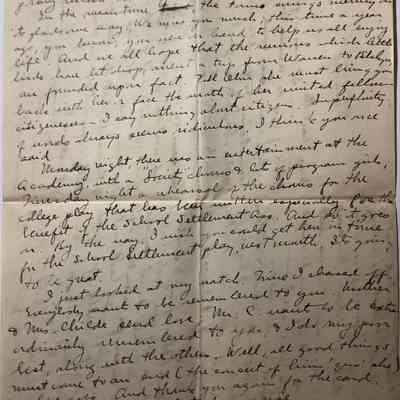 In the meantime, the town swings merrily on
its gladsome way. We miss you much, this time a year
ago, you know, you were on hand to help us all enjoy
life. And we all hope that the rumors which little
birds have let drop, about a trip from Warren to
are founded upon fact. Tell her she must bring you
back with her & face the wrath of her united fellow
citizenesses – I say nothing about citizens. Superfluity
of words always seems ridiculous, I think you once
said.
Monday night there was an entertainment at the
Academy, with a "Scout" chorus & lots of program girls,
Thursday night a rehearsal of the chorus for the
college play that has been written especially for the
benefit of the School Settlement Ass. And so it goes
on. By the way, I wish you could get here in time
for the School Settlement play, next month. It's going
to be great.
I just looked at my watch. Time I chased off.
Everybody wants to be remembered to you. Mother
& Mrs. Childs send love. Mr. C wants to be extra
ordinarily remembered to you & I do my poor
best, along with the others. Well, all good things
must come to an end (the conceit of
And thank you again for the card.